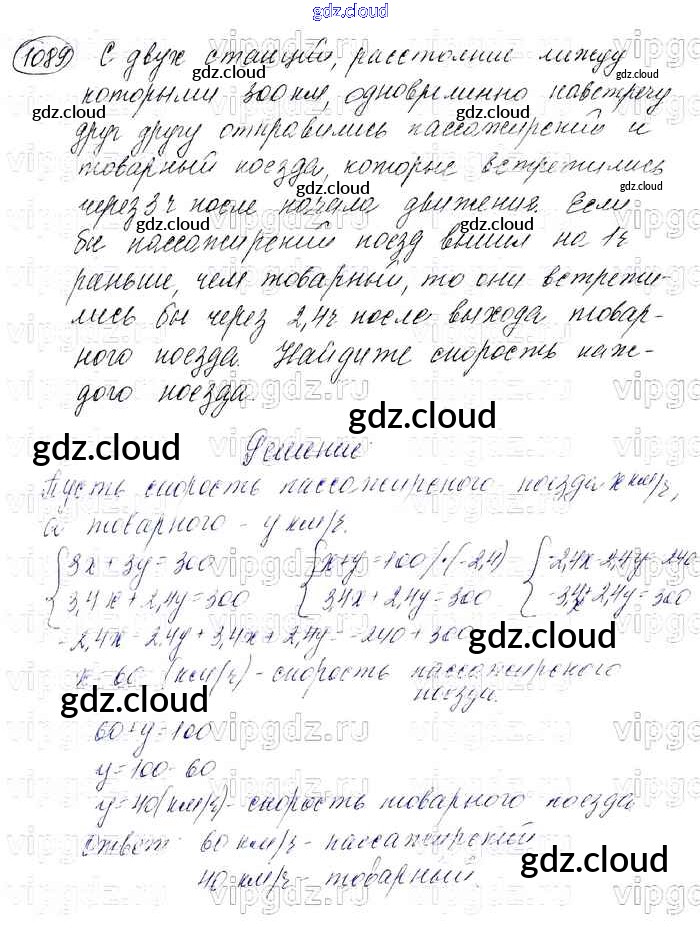 gdz.cloud
1089 С двух станций, расстояние между
которыми 300 км, одновременно навстречу
друг другу отправились пассажирский и
товарный поезда, которые встретились
через 3 ч после начала движения. Если
бы пассажирский поезд вышел на 1 ч
раньше, чем товарный, то они встрети-
лись бы через 2,4 ч после выхода товар-
ного поезда. Найдите скорость каж-
дого поезда.
gdz.cloud
Решение:
Пусть скорость пассажирского поезда x км/ч,
а товарного - y км/ч.
{3x + 3y = 300 {x+y=100 |·(-2,4) {-2,4x-2,4y=-240
{3,4x + 2,4y = 300 {3,4x + 2,4y = 300 {3,4x+2,4y=300
-2,4x - 2,4y + 3,4x + 2,4y = -240 + 300
x = 60 (км/ч) - скорость пассажирского
поезда.
60+y=100
y=100-60
y=40(км/ч) - скорость товарного поезда
Ответ: 60 км/ч - пассажирский
40 км/ч - товарный.
gdz.cloud